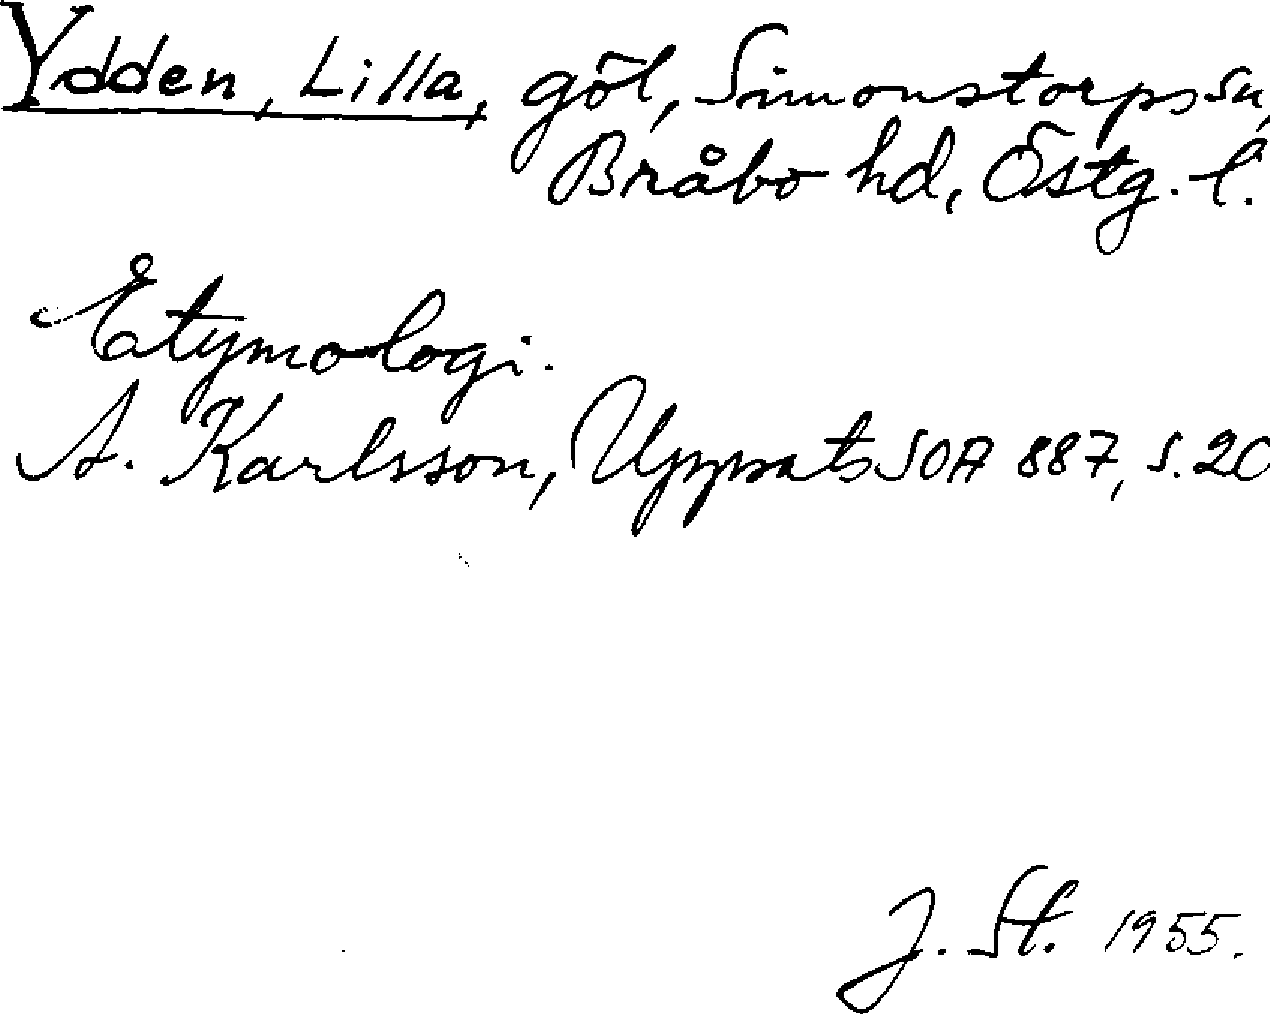 Ydden, Lilla, göl, Simonstorps sn,
Bråbo hd, Östg. l.
Etymologi.
A. Karlsson, Uppsats SOA 887, s. 20
J. St. 1955.